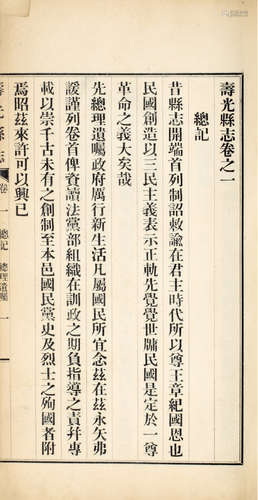 壽光縣志卷之一
總記
昔縣志開端首列制詔敕諭在君主時代所以尊王章紀國恩也
民國創造以三民主義表示正軌先覺覺世牖民國是定於一尊
革命之義大矣哉
先總理遺囑政府厲行新生活凡屬國民所宜念茲在茲永矢弗
諼謹列卷首俾資讀法黨部組織在訓政之期負指導之責幷專
載以崇千古未有之創制至本邑國民黨史及烈士之殉國者附
焉昭茲來許可以興已
壽光縣志
卷一
總記
總理遺囑
一